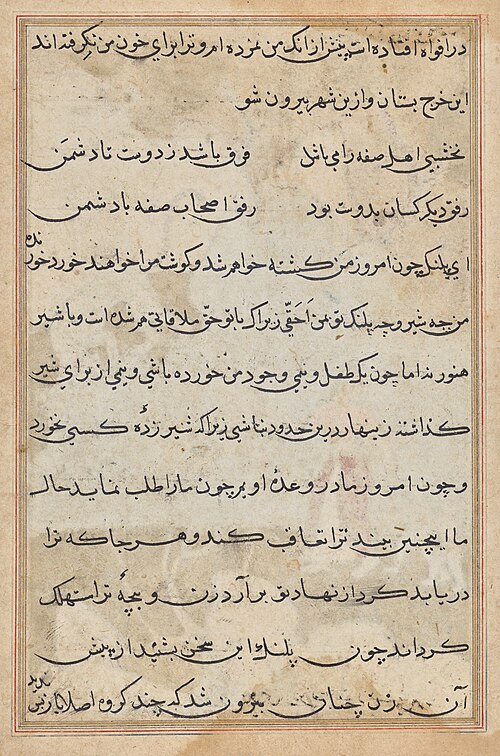 در افواه افتاده است پیش از انک من مرده ام و ترا برای خون من نگرفته اند
این خرج بستان و ازین شهر بیرون شو
نخشبی اهل صفه را می باشد فرق باشد ز دوست تا دشمن
رفق دیگر کسان بدوست بود رفق اصحاب صفه با دشمن
ای پلنک چون امروز من کشته خواهم شد و کوشت من خواهند خورد خورنده
من چه شیر و چه پلنک تو بمن احقی زیراک با تو حق ملاقاتی هم شده است و با شیر
هنوز نه اما چون یک طفل و نیمی وجود من خورده باشی و نیمی از برای شیر
کذاشته زینهار درین حدود نباشی زیراکه شیر زده کسی نخورد
و چون امروز مادر وعده او یم چون ما را طلب نماید حال
ما اینچنین بیند ترا تعاقب کند و هر جا که ترا
دریابد کرد از نهاد تو برآرد زن و بچه ترا مستهلک
کرداند چون پلنک این سخن بشنید از پیش
آن زن چنان بیرون شد که چند کروه اصلا باز پس ندید